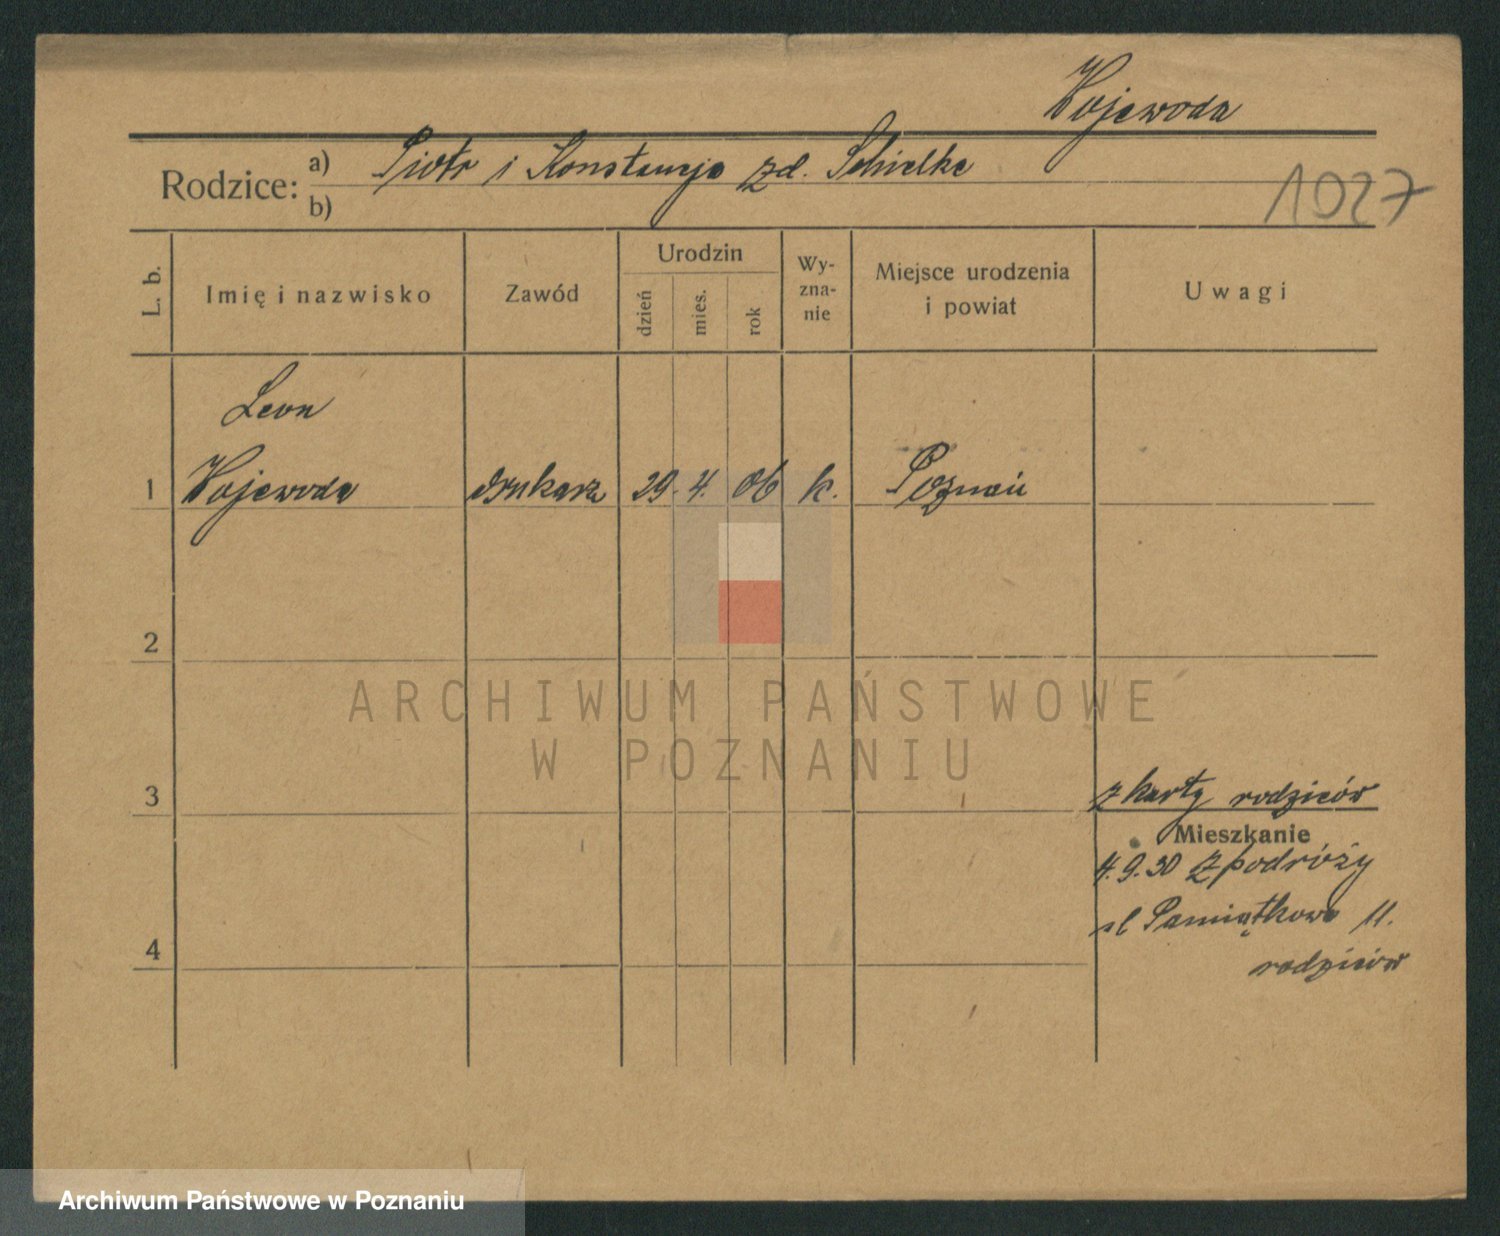 Wojewoda
Rodzice: a) Piotr i Konstancja zd. Schielke
b)
1027
L. b.
Imię i nazwisko
Zawód
Urodzin
dzień
mies.
rok
Wy-
zna-
nie
Miejsce urodzenia
i powiat
Uwagi
Leon
1 Wojewoda drukarz 29. 4. 06 k. Poznań
2
ARCHIWUM PAŃSTWOWE
W POZNANIU
3
z karty rodziców
Mieszkanie
4.9.30 z podróży
ul Pamiątkowa 11.
4
rodziców
Archiwum Państwowe w Poznaniu